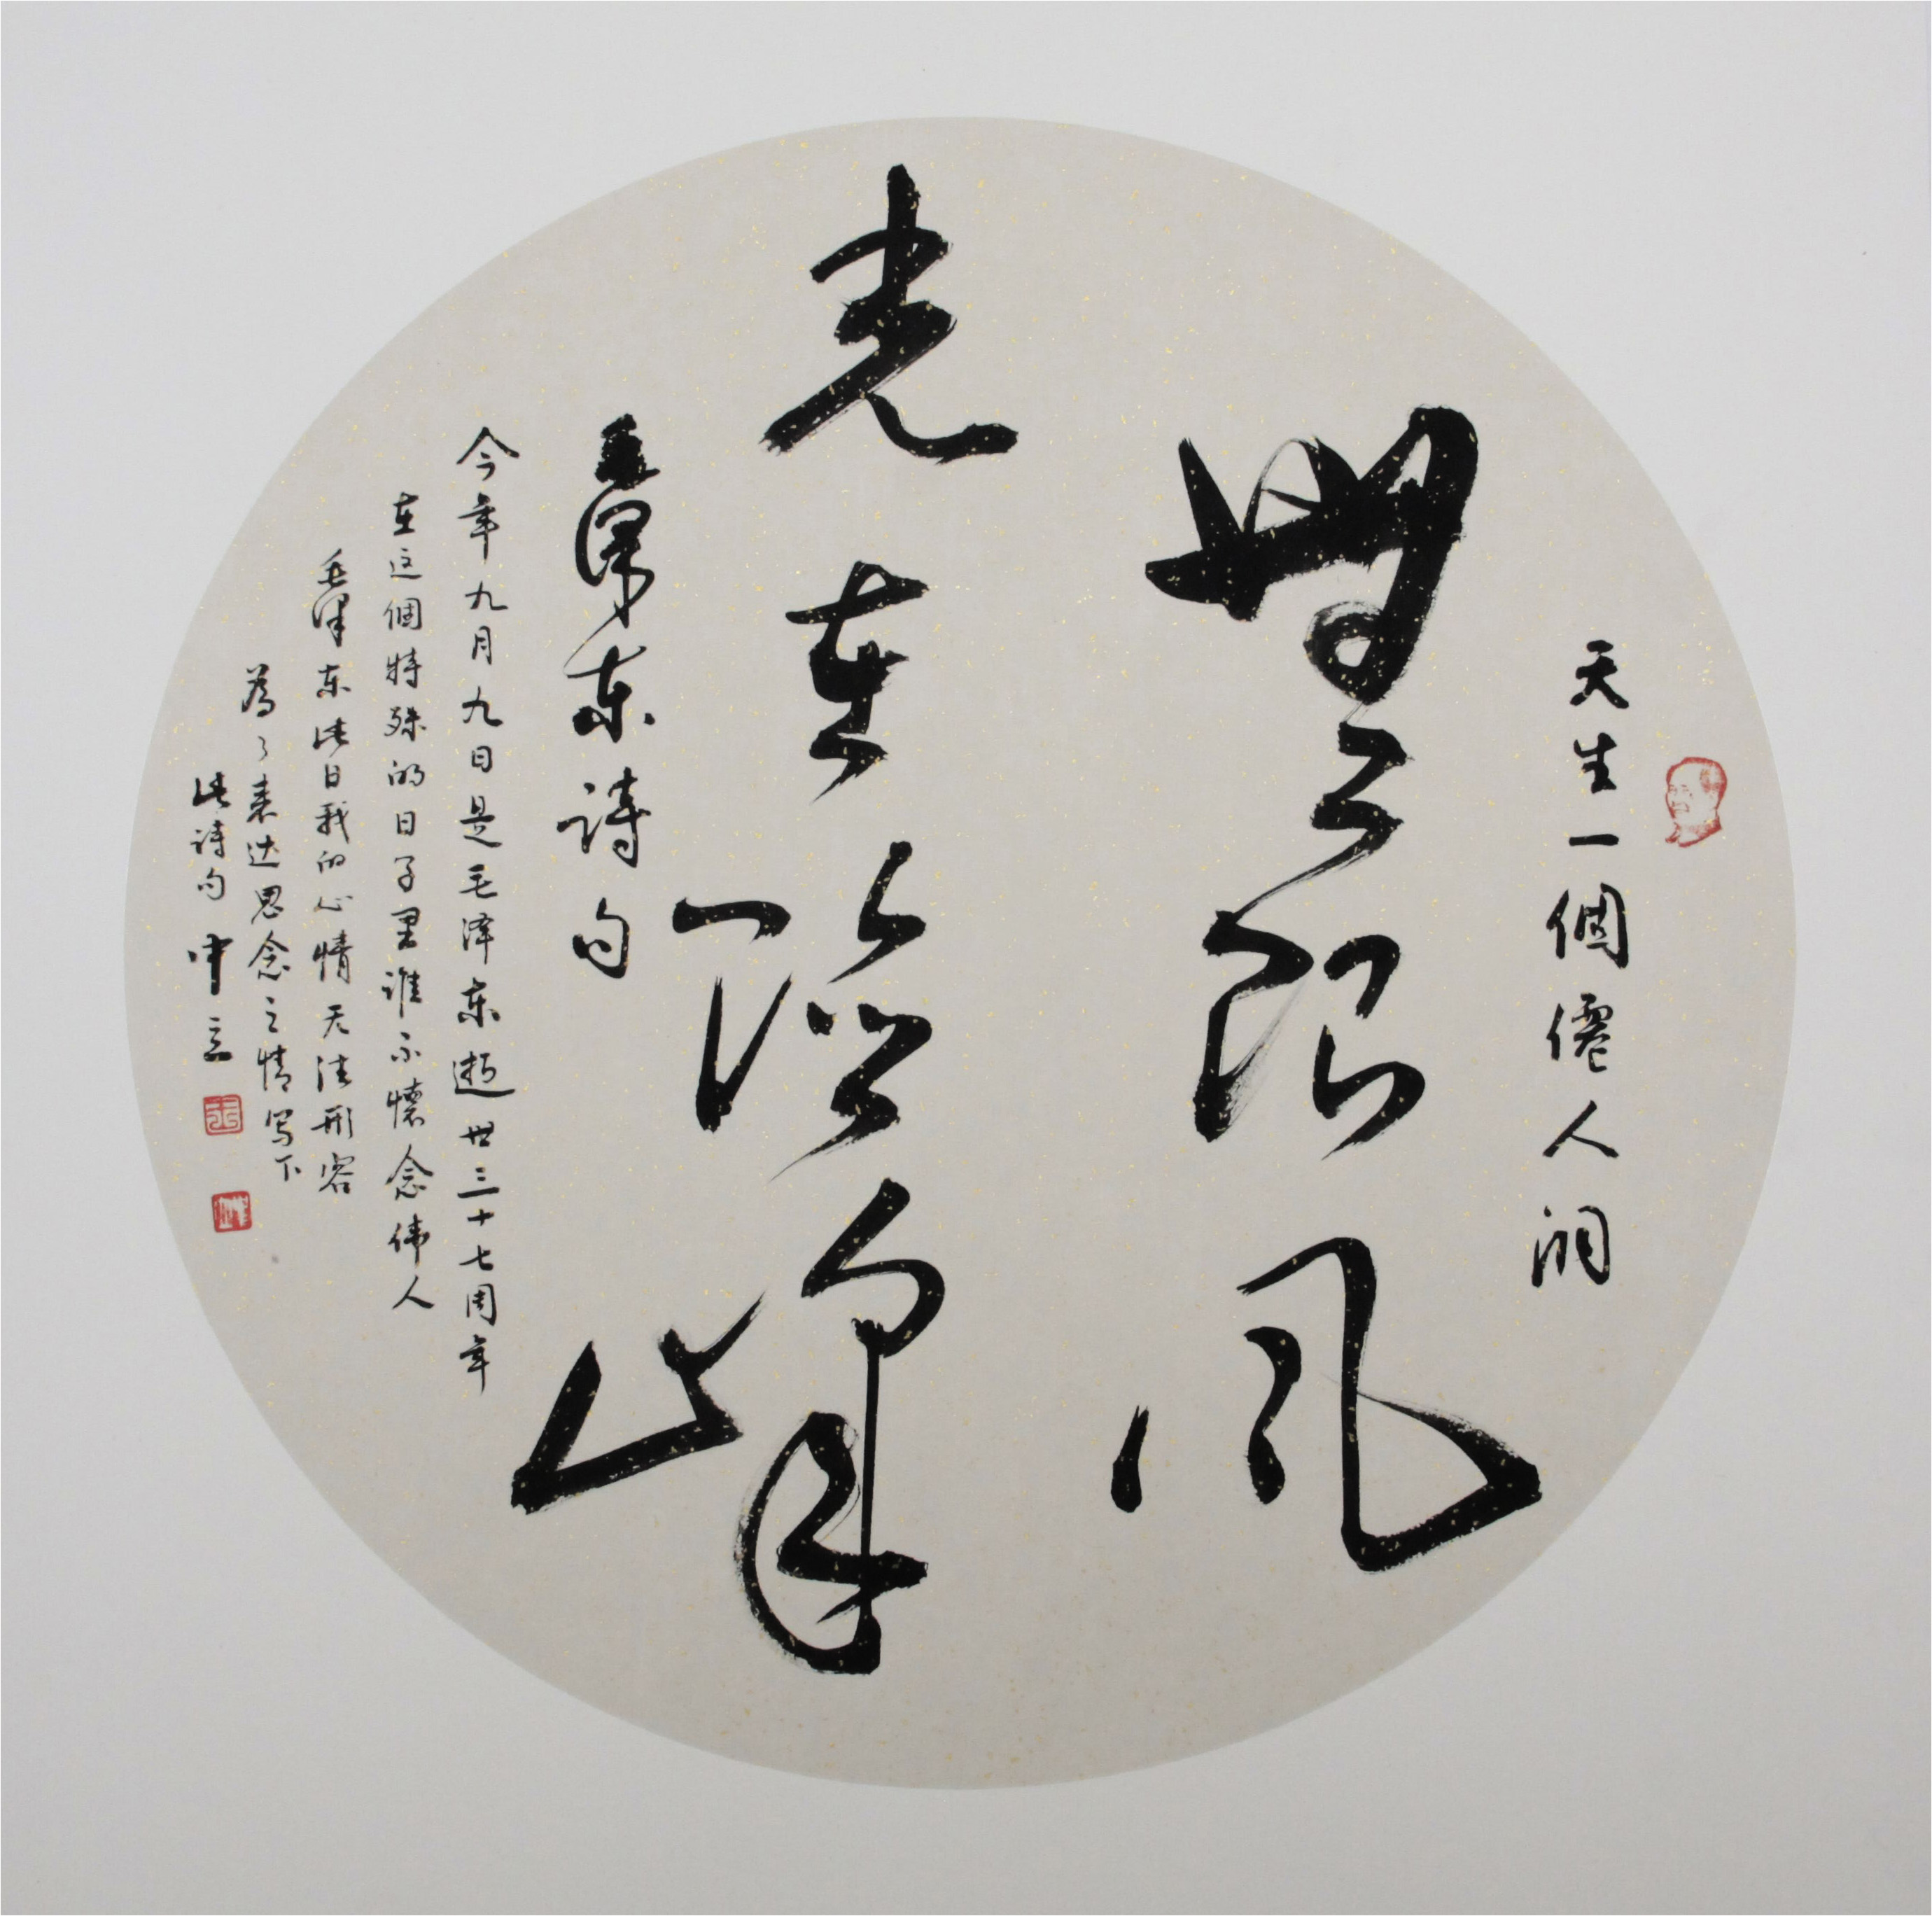 天生一個僊人洞
無限風
光在險峰
毛澤东诗句
今年九月九日是毛泽东逝世三十七周年
在这個特殊的日子里谁不懷念伟人
毛泽东此日我的心情无法形容
為了表达思念之情写下
此诗句 中立